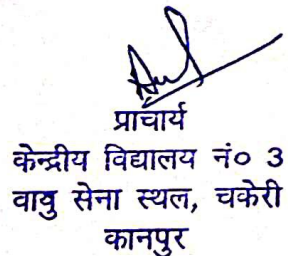 प्राचार्य
केन्द्रीय विद्यालय नं० 3
वायु सेना स्थल, चकेरी
कानपुर